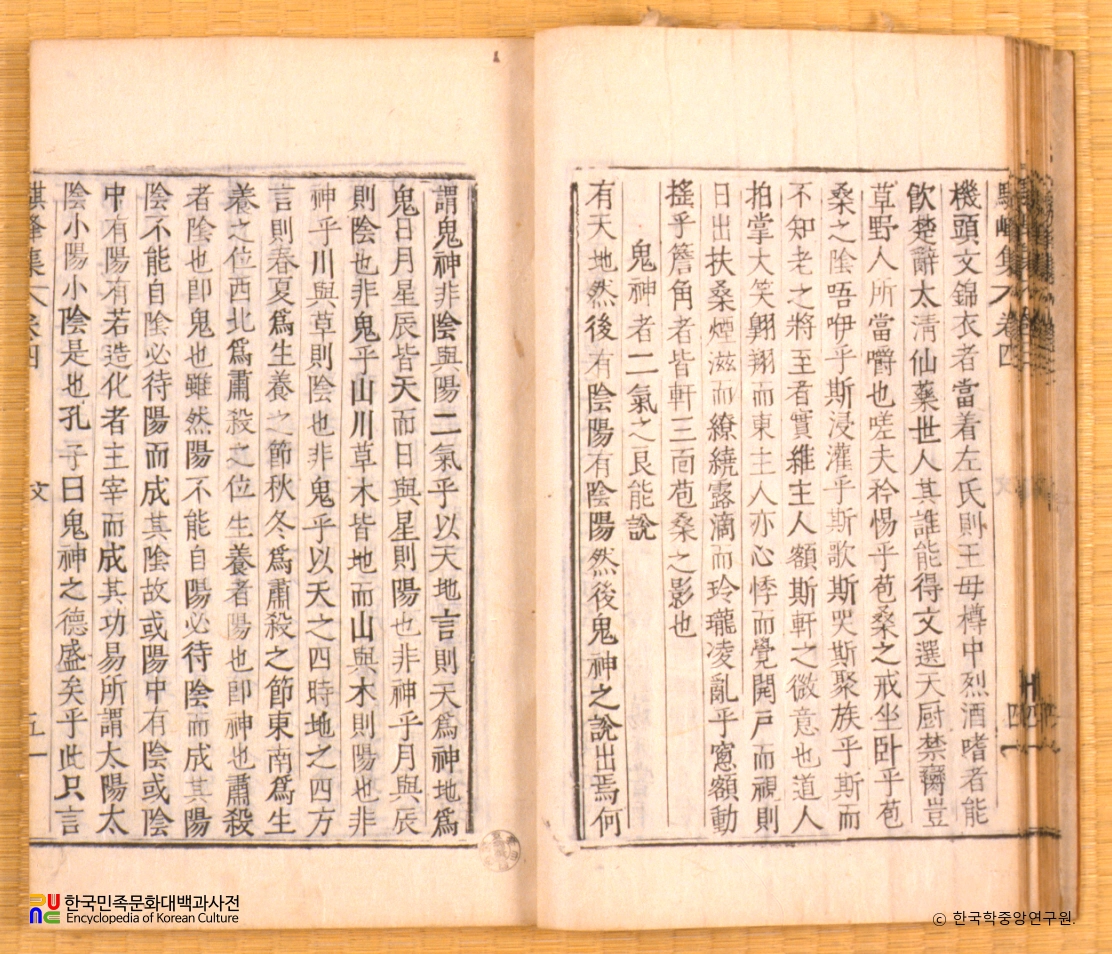 機頭文錦衣者當着左氏則王毋樽中烈酒嗜者能
飮楚辭太淸仙藥世人其誰能得文選天厨禁臠豈
草野人所當嚼也嗟夫矜惕乎苞桑之戒坐卧乎苞
桑之陰唔咿乎斯浸灌乎斯歌斯哭斯聚族乎斯而
不知老之將至者實維主人額斯軒之微意也道人
拍掌大笑翺翔而東主人亦心悸而覺開戶而視則
日出扶桑煙滋而繚繞露滴而玲瓏凌亂乎窻額動
搖乎簷角者皆軒三面苞桑之影也
鬼神者二氣之良能說
有天地然後有陰陽有陰陽然後鬼神之說出焉何
謂鬼神非陰與陽二氣乎以天地言則天爲神地爲
鬼日月星辰皆天而日與星則陽也非神乎月與辰
則陰也非鬼乎山川草木皆地而山與木則陽也非
神乎川與草則陰也非鬼乎以天之四時地之四方
言則春夏爲生養之節秋冬爲肅殺之節東南爲生
養之位西北爲肅殺之位生養者陽也卽神也肅殺
者陰也卽鬼也雖然陽不能自陽必待陰而成其陽
陰不能自陰必待陽而成其陰故或陽中有陰或陰
中有陽有若造化者主宰而成其功易所謂太陽太
陰小陽小陰是也孔子曰鬼神之德盛矣乎此只言
騏峰集 卷四 文 五一
한국민족문화대백과사전
Encyclopedia of Korean Culture
© 한국학중앙연구원.